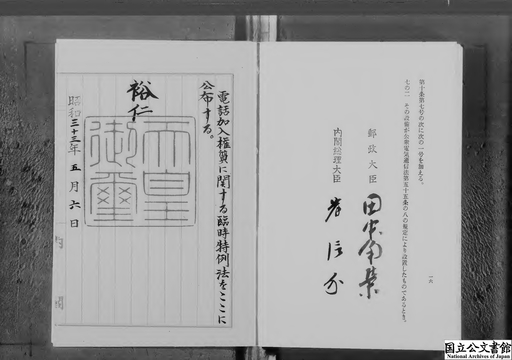 第十条第七号の次に次の一号を加える。
七の二 その設備が公衆電気通信法第五十五条の八の規定により設置したものであるとき。
一六
郵政大臣 田中角榮
内閣総理大臣 岸信介
電話加入権質に関する臨時特例法をここに
公布する。
裕仁
天皇御璽
昭和三十三年五月六日
国立公文書館
National Archives of Japan